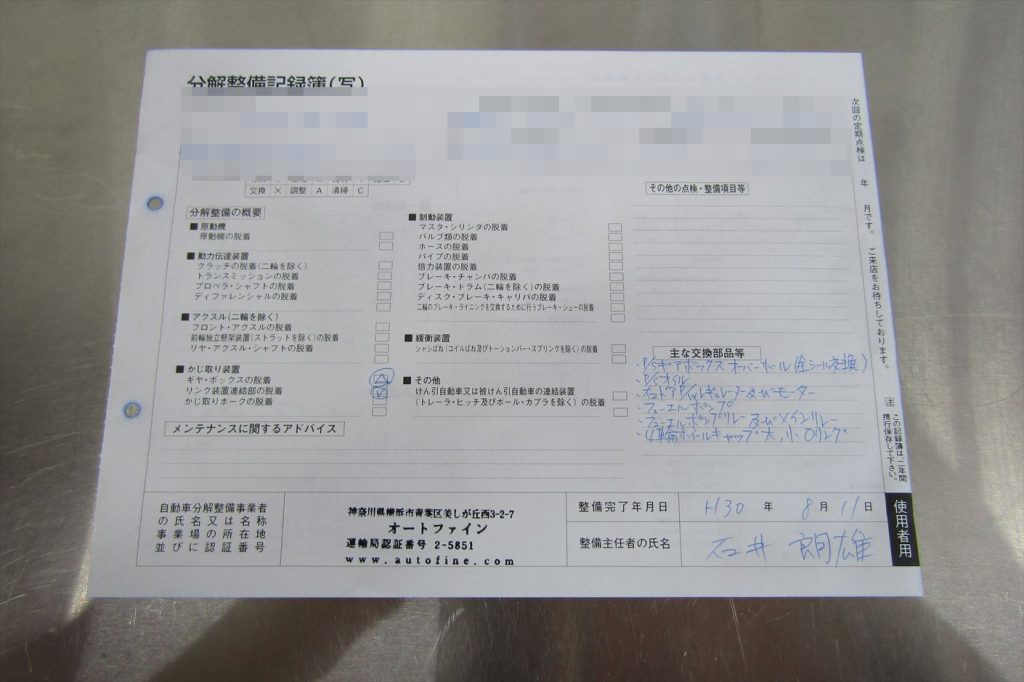 分解整備記録簿(写)
交換 × 調整 A 清掃 C
その他の点検・整備項目等
分解整備の概要
■ 原動機
原動機の脱着
■ 動力伝達装置
クラッチの脱着(二輪を除く)
トランスミッションの脱着
プロペラ・シャフトの脱着
ディファレンシャルの脱着
■ アクスル(二輪を除く)
フロント・アクスルの脱着
前輪独立懸架装置(ストラットを除く)の脱着
リヤ・アクスル・シャフトの脱着
■ かじ取り装置
ギヤ・ボックスの脱着
リンク装置連結部の脱着
かじ取りホークの脱着
■ 制動装置
マスタ・シリンダの脱着
バルブ類の脱着
ホースの脱着
パイプの脱着
倍力装置の脱着
ブレーキ・チャンバの脱着
ブレーキ・ドラム(二輪を除く)の脱着
ディスク・ブレーキ・キャリパの脱着
二輪のブレーキ・ライニングを交換するために行うブレーキ・シューの脱着
■ 緩衝装置
シャシばね(コイルばね及びトーションバー・スプリングを除く)の脱着
■ その他
けん引自動車又は被けん引自動車の連結装置
(トレーラ・ヒッチ及びボール・カプラを除く)の脱着
主な交換部品等
・P/Sギヤボックス オーバーホール(全シール交換)
・P/Sオイル
レギュレーター及びモーター
・フューエルポンプ
・フューエルポンプリレー及びメインリレー
・4輪ホイールキャップ 大,小 Oリング
メンテナンスに関するアドバイス
自動車分解整備事業者
の氏名又は名称
事業場の所在地
並びに認証番号
神奈川県横浜市青葉区美しが丘西3-2-7
オートファイン
運輸局認証番号 2-5851
www.autofine.com
整備完了年月日 H30 年 8月 11日
整備主任者の氏名 石井 朗雄
次回の定期点検は 年 月です。 ご来店をお待ちしております。
注 この記録簿は、二年間
携行保存して下さい。
使用者用